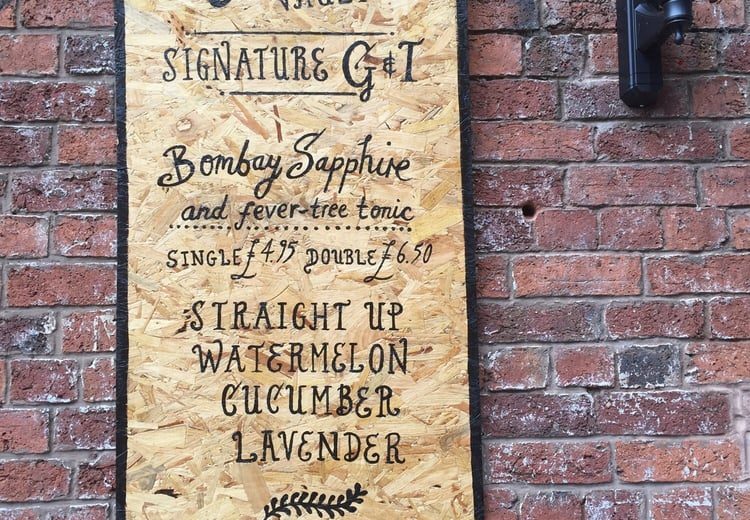 SIGNATURE G&T
Bombay Sapphire
and fever-tree tonic
SINGLE £4.95 DOUBLE £6.50
STRAIGHT UP
WATERMELON
CUCUMBER
LAVENDER